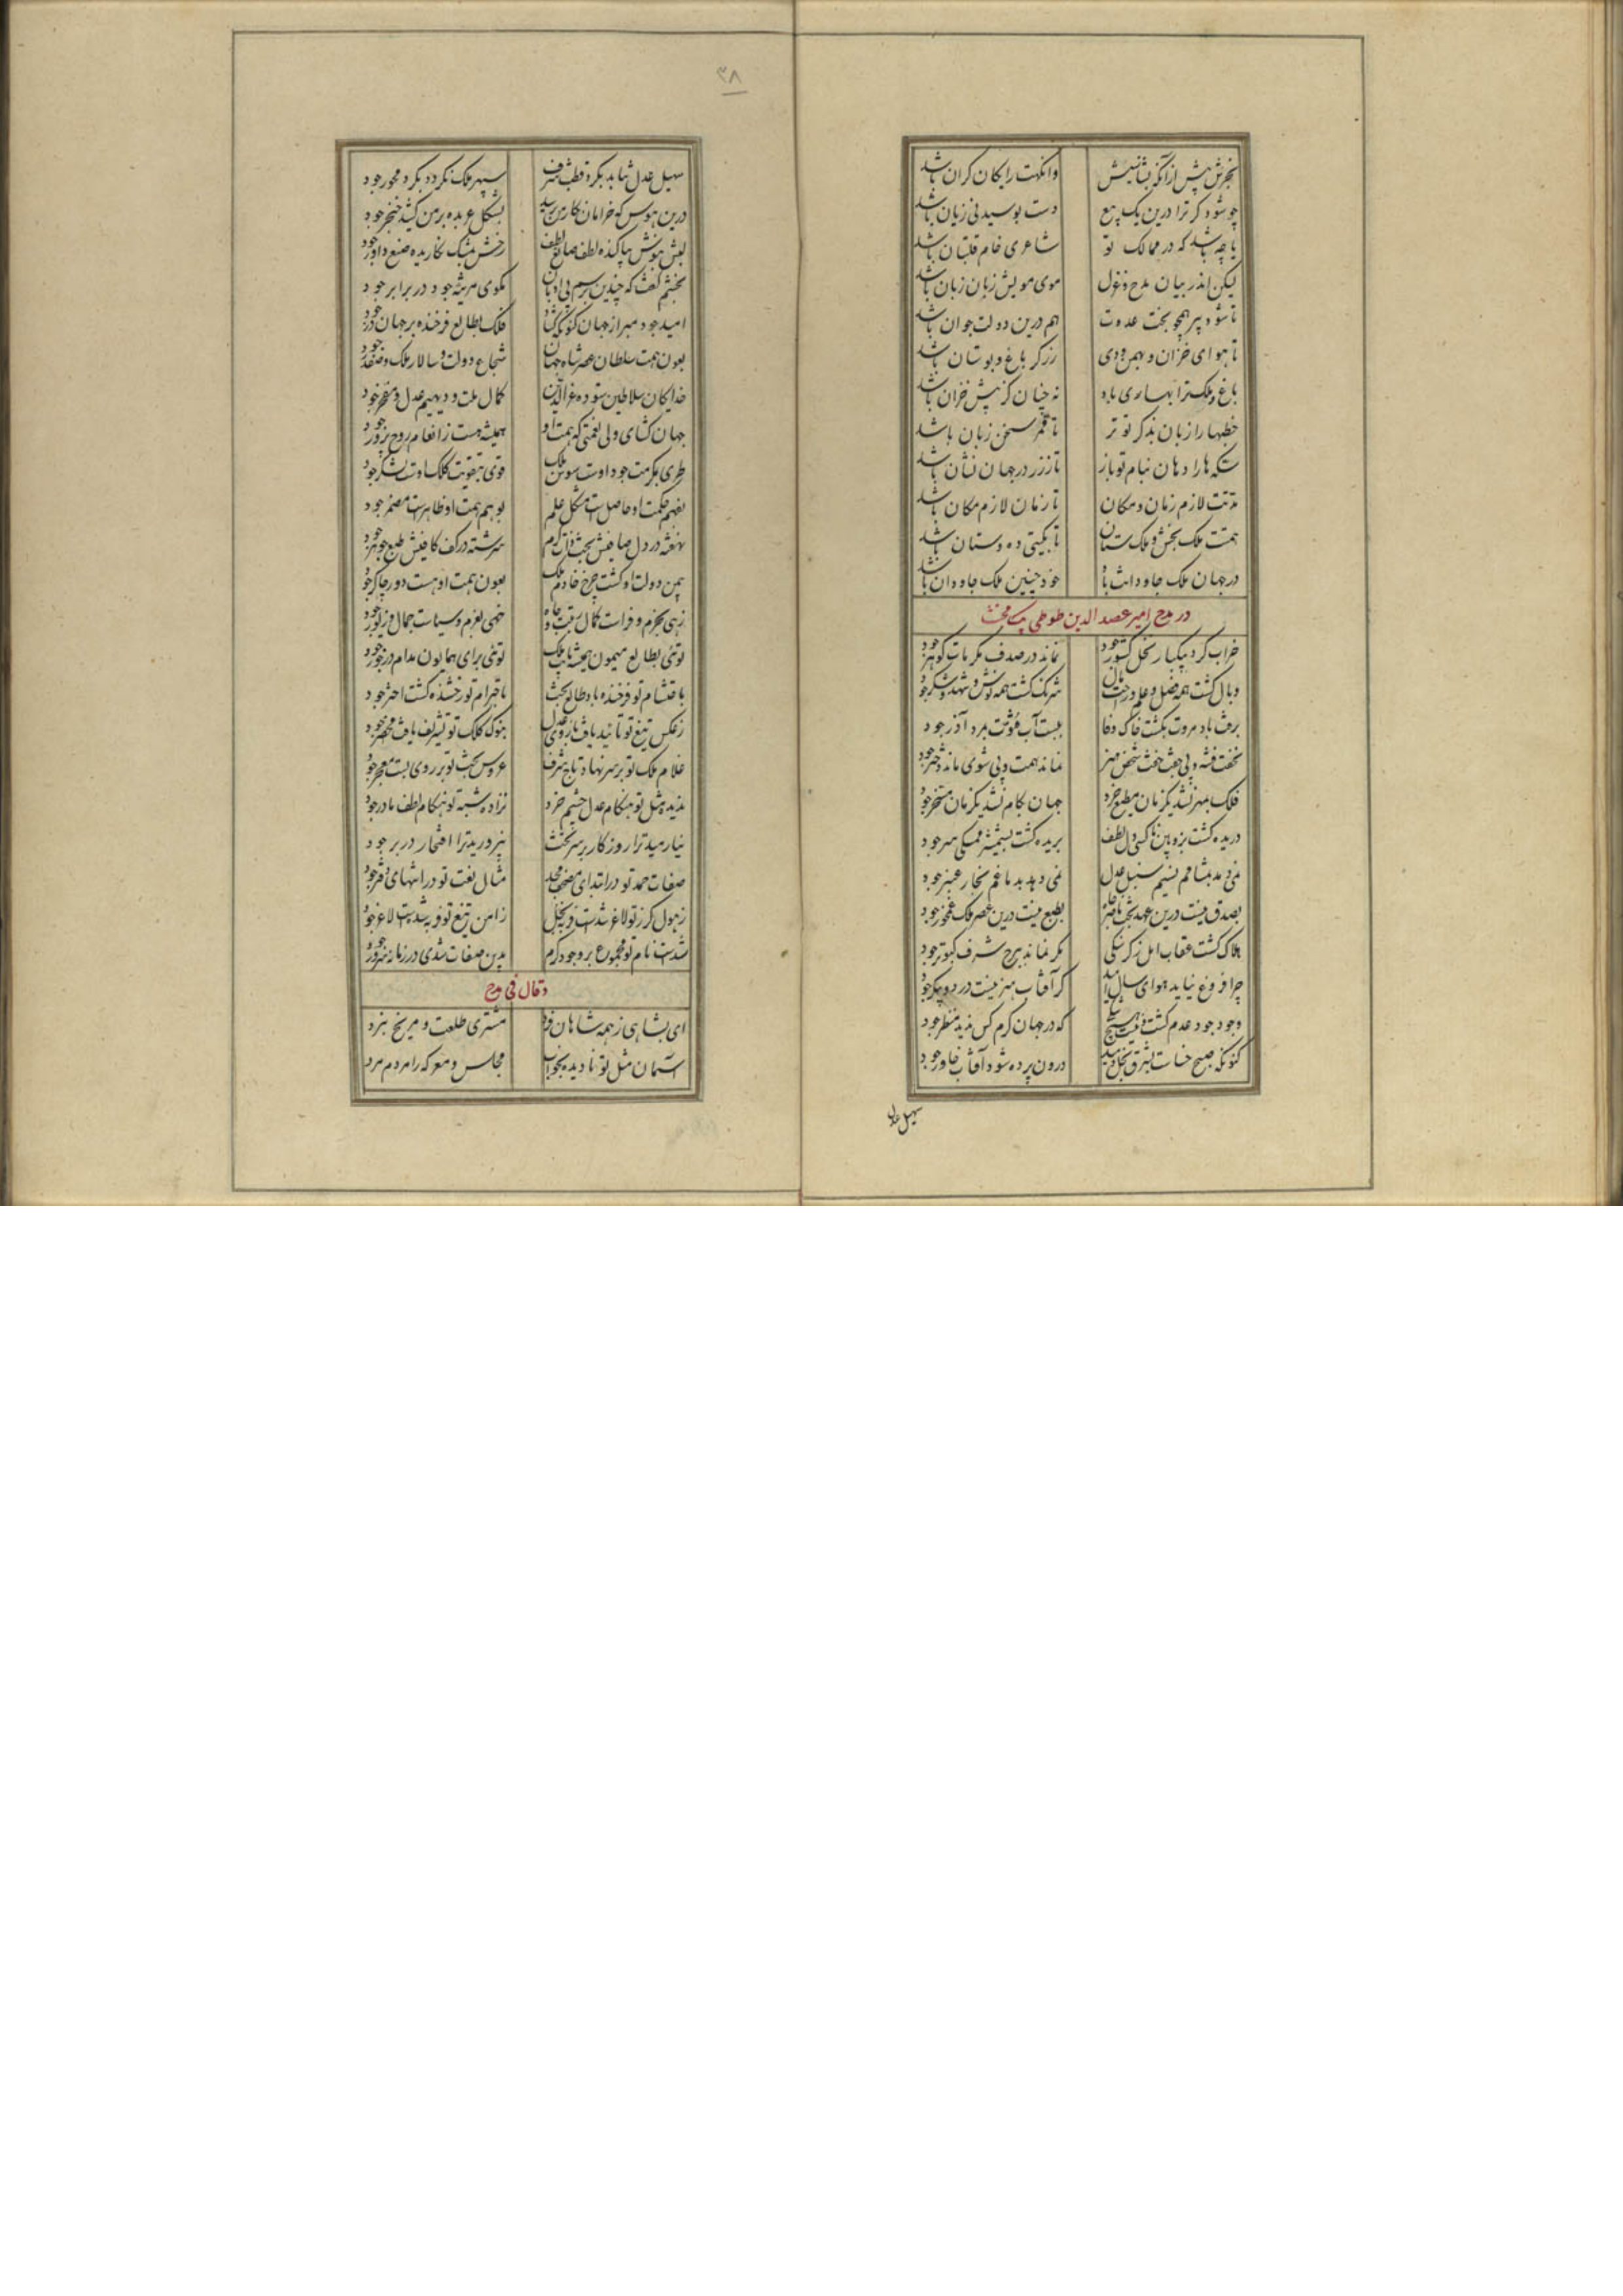 بخرش پیش از آنکه بشناسیش وانکهت رایکان کران باشد
چو شود کر ترا درین یک بیع دست بوسیدنی زیان باشد
یا چه باشد که در ممالک تو شاعری خام قلتبان باشد
لیکن اندر بیان مدح و غزل موی مویش زبان زبان باشد
تا شود پیر همچو بخت عدوت هم درین دولت جوان باشد
تا هوای خزان و بهمن و دی زرکر باغ و بوستان باشد
باغ ملک ترا بهاری باد نه چنان کز پیش خزان باشد
خطبها را زبان بذکر تو تر تا قمر سخن زبان باشد
سکه ها را دهان بنام تو باز تا ز زر در جهان نشان باشد
مدتت لازم زمان و مکان تا زمان لازم مکان باشد
همت ملک بخش و ملک ستان تا بکیتی ده و ستان باشد
در جهان ملک جاودانت باد خود چنین ملک جاودان باشد
در مدح امیر عضد الدین طوطی بیک
خراب کرد بیکبار بخل کشور جود نماند در صدف مکرمات کوهر جود
وبال کشت همه فضل و علم و راحت و مال شرنک کشت همه نوش و شهد و شکر جود
برفت باد مروت بکشت خاک وفا ببست آب فتوت بمرد آذر جود
نخفت فتنه و بی جفت خفت شخص هنر نماند همت و بی شوی ماند دختر جود
فلک بمهر نشد یکزمان مطیع خرد جهان بکام نشد یکزمان مسخر جود
دریده کشت بزوبین ناکسی دل لطف بریده کشت بشمشیر ممسکی سر جود
نمی دمد بمشامم نسیم سنبل عدل نمی دهد بدماغم بخار عنبر جود
بصدق نیست درین عهد بخت ناصر بطبع نیست درین عصر ملک غمخور جود
هلاک کشت عقاب امل ز کرسنکی مکر نماند ببرج شرف کبوتر جود
چرا فروغ نیاید هوای سال امید کر آفتاب هنر نیست در دو پیکر جود
وجود جود عدم کشت و نیست هیچ که در جهان کرم کس ندید منظر جود
کنونکه صبح خساست ز شرق بخل دمید درون پرده شود آفتاب خاور جود
سهیل عدل
۳۸
سهیل عدل نتابد بکرد قطب شرف سپهر ملک نکردد بکرد محور جود
درین هوس که خرامان نکار من برسید بشکل عربده بر من کشید خنجر جود
لبش بنوش بیاکنده لطف صانع لطف رخش بمشک نکاریده صنع داور جود
بخشم کفت که چندین برسم بی ادبان مکوی مرثیه جود در برابر جود
امید جود مبر از جهان کنون که کشاد فلک بطالع فرخنده بر جهان در جود
بعون همت سلطان عصر شاه جهان شجاع دولت و سالار ملک و صفدر جود
خدایکان سلاطین ستوده عز الدین کمال ملت و دیهیم عدل و مغفر جود
جهان کشای ولی نعمتی که همت او همیشه هست ز انعام روح پرور جود
طری بمکرمت جود اوست سوسن ملک قوی بتقویت کلک اوست لشکر جود
بفهم حکمت او حاصلست مشکل علم بوهم همت او ظاهرست مضمر جود
نهفته در دل صافیش بخت ذات کرم سرشته در کف کافیش طبع جوهر جود
بیمن دولت او کشت چرخ خادم ملک بعون همت او هست دور چاکر جود
زهی بحزم و فراست کمال رتبت جاه خهی بعزم و سیاست جمال و زیور جود
توئی بطالع میمون همیشه بابت ملک توئی برای همایون مدام در خور جود
باحتشام تو فرخنده باد طالع بخت باحترام تو رخشنده کشت اختر جود
ز عکس تیغ تو تائید یافت بازوی عدل بنوک کلک تو تشریف یافت محضر جود
غلام ملک تو بر سر نهاد تاج شرف عروس بخت تو بر روی بست معجر جود
ندیده مثل تو هنکام عدل چشم خرد نزاده شبه تو هنکام لطف مادر جود
نیارمید ترا روزکار بر سر بخت نپرورید ترا افتخار در بر جود
صفات حمد تو در ابتدای مصحف مجد مثال نعت تو در انتهای دفتر جود
ز هول کرز تو لاغر شدست فربه بخل ز امن تیغ تو فربه شدست لاغر جود
شدست نام تو مجموع بر وجود کرم بدین صفات شدی در زمانه سرور جود
وقال فی مدح
ای بشاهی ز همه شاهان فرد مشتری طلعت و مریخ نبرد
آسمان مثل تو نادیده بخواب مجلس و معرکه را مردم مرد